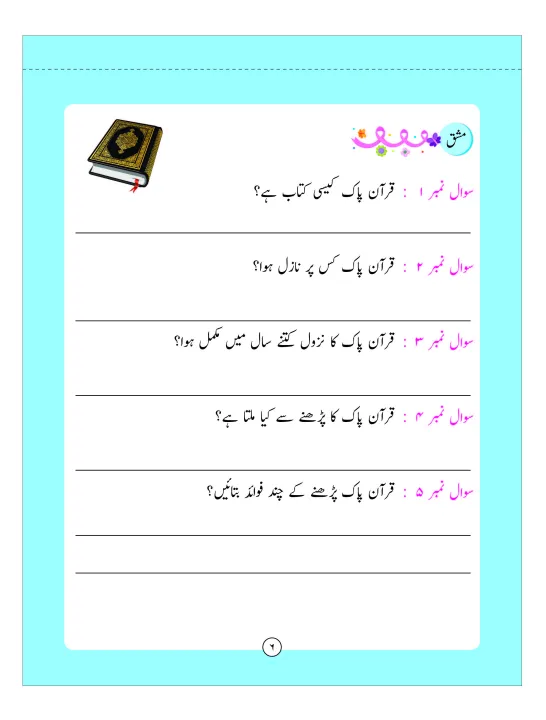 مشق
سوال نمبر ۱ : قرآن پاک کیسی کتاب ہے؟
سوال نمبر ۲ : قرآن پاک کس پر نازل ہوا؟
سوال نمبر ۳ : قرآن پاک کا نزول کتنے سال میں مکمل ہوا؟
سوال نمبر ۴ : قرآن پاک کا پڑھنے سے کیا ملتا ہے؟
سوال نمبر ۵ : قرآن پاک پڑھنے کے چند فوائد بتائیں؟
۹